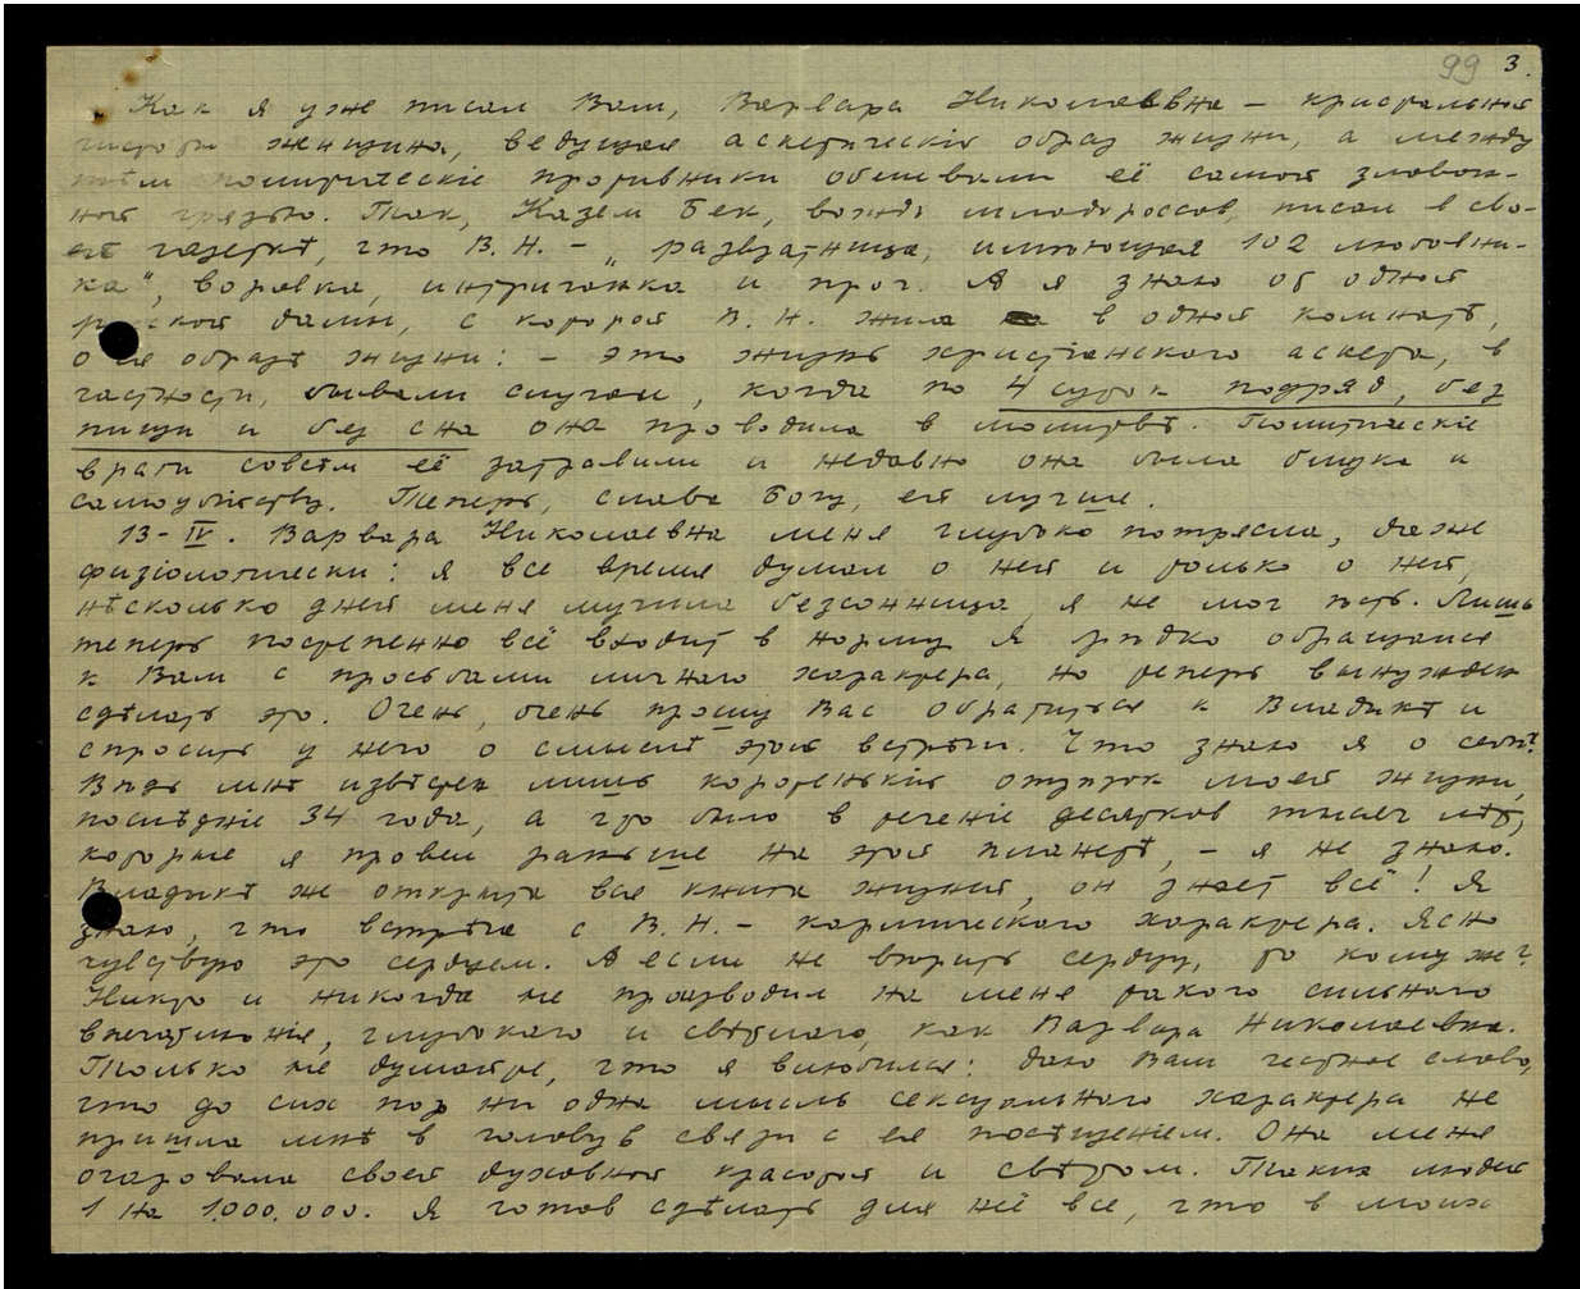 99 3.
Как я уже писал Вам, Варвара Николаевна – кристальной
чистоты женщина, ведущая аскетическiй образ жизни, а между
тѣм политическiе противники обливали её самой зловон-
ной грязью. Так, Казем Бек, вождь младороссов, писал в сво-
ей газетѣ, что В. Н. – „развратница, имѣющая 102 любовни-
ка", воровка, интриганка и проч. А я знаю об одной
русской дамы, с которой В. Н. жила в одной комнатѣ,
о ея образѣ жизни: – это жизнь христiанского аскета, в
частности, бывали случаи, когда по 4 суток подряд, без
пищи и без сна она проводила в молитвѣ. Политическiе
враги совсѣм её затравили и недавно она была близка к
самоубiйству. Теперь, слава Богу, ей лучше.
13-IV. Варвара Николаевна меня глубоко потрясла, даже
физiологически: я все время думал о ней и только о ней,
нѣсколько дней меня мучила безсонница, я не мог ѣсть. Лишь
теперь постепенно всё входит в норму. Я рѣдко обращался
к Вам с просьбами личного характера, но теперь вынужден
сдѣлать это. Очень, очень прошу Вас обратиться к Владыкѣ и
спросить у него о смыслѣ этой встрѣчи. Что знаю я о себѣ?
Вѣдь мнѣ извѣстен лишь коротенькiй отрѣзок моей жизни,
послѣднiе 34 года, а что было в теченiе десятков тысяч лѣт,
которые я провел раньше на этой планетѣ, – я не знаю.
Владыкѣ же открыта вся книга жизней, он знает всё! Я
знаю, что встрѣча с В. Н. – кармического характера. Ясно
чувствую это сердцем. А если не вѣрить сердцу, то кому же?
Никто и никогда не производил на меня такого сильного
впечатлѣнiя, глубокаго и свѣтлаго, как Варвара Николаевна.
Только не думайте, что я влюбился: даю Вам честное слово,
что до сих пор ни одна мысль сексуального характера не
пришла мнѣ в голову в связи с ея посѣщенiем. Она меня
очаровала своей духовной красотой и свѣтом. Таких людей
1 на 1.000.000. Я готов сдѣлать для неё все, что в моих